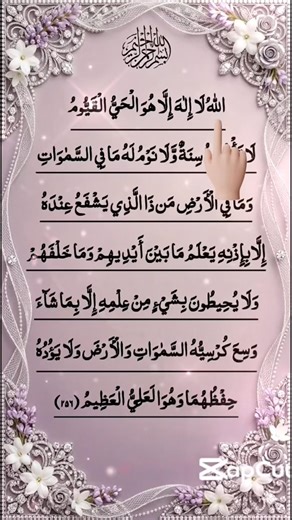 بسم الله الرحمن الرحيم
اللهُ لَا إِلٰهَ إِلَّا هُوَ الْحَيُّ الْقَيُّومُ
سِنَةٌ وَّلَا نَوْمٌ لَهُ مَا فِي السَّمٰوَاتِ
وَمَا فِي الْأَرْضِ مَن ذَا الَّذِي يَشْفَعُ عِنْدَهُ
إِلَّا بِإِذْنِهِ يَعْلَمُ مَا بَيْنَ أَيْدِيهِمْ وَمَا خَلْفَهُمْ
وَلَا يُحِيطُونَ بِشَيْءٍ مِنْ عِلْمِهِ إِلَّا بِمَا شَاءَ
وَسِعَ كُرْسِيُّهُ السَّمٰوَاتِ وَالْأَرْضَ وَلَا يَؤُدُهُ
حِفْظُهُمَا وَهُوَ الْعَلِيُّ الْعَظِيمُ (٢٥٦)
CapCut